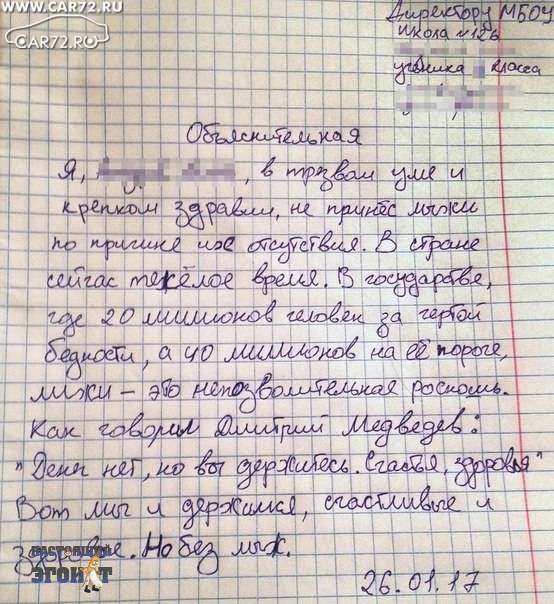 WWW.CAR72.RU
CAR72.RU
Директору МБОУ
школа №126
ученика класса
Объяснительная
Я, , в трезвом уме и
крепком здравии, не принёс лыжи
по причине их отсутствия. В стране
сейчас тяжёлое время. В государстве,
где 20 миллионов человек за чертой
бедности, а 40 миллионов на её пороге,
лыжи – это непозволительная роскошь.
Как говорил Дмитрий Медведев:
"Денег нет, но вы держитесь. Счастья, здоровья"
Вот мы и держимся, счастливые и
здоровые. Но без лыж.
НАСТОЯЩИЙ
ЭГОИСТ
26.01.17